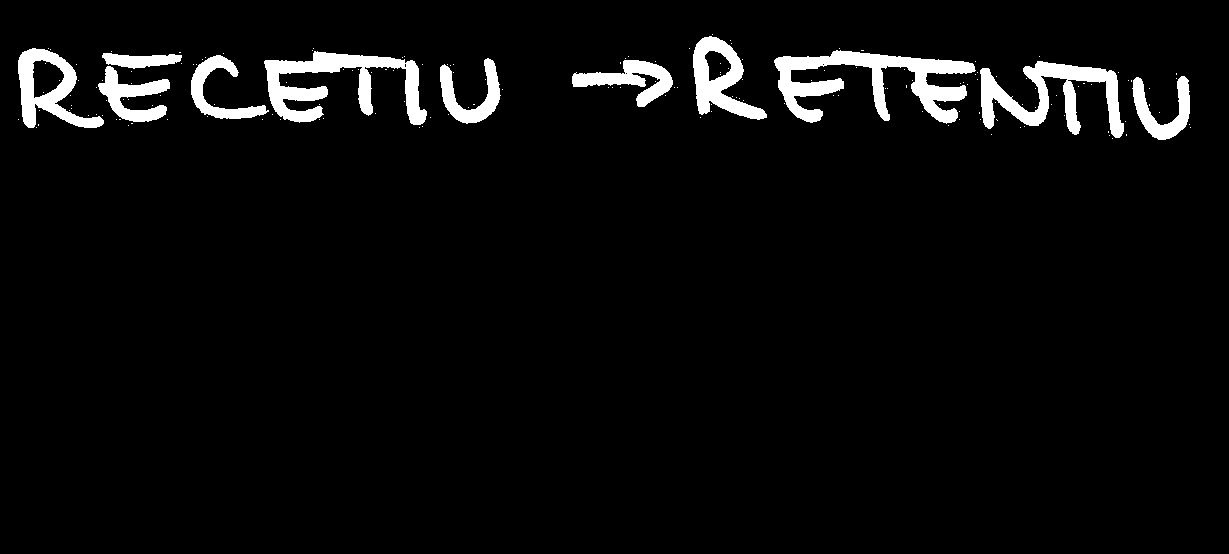 RECETIU → RETENTIU